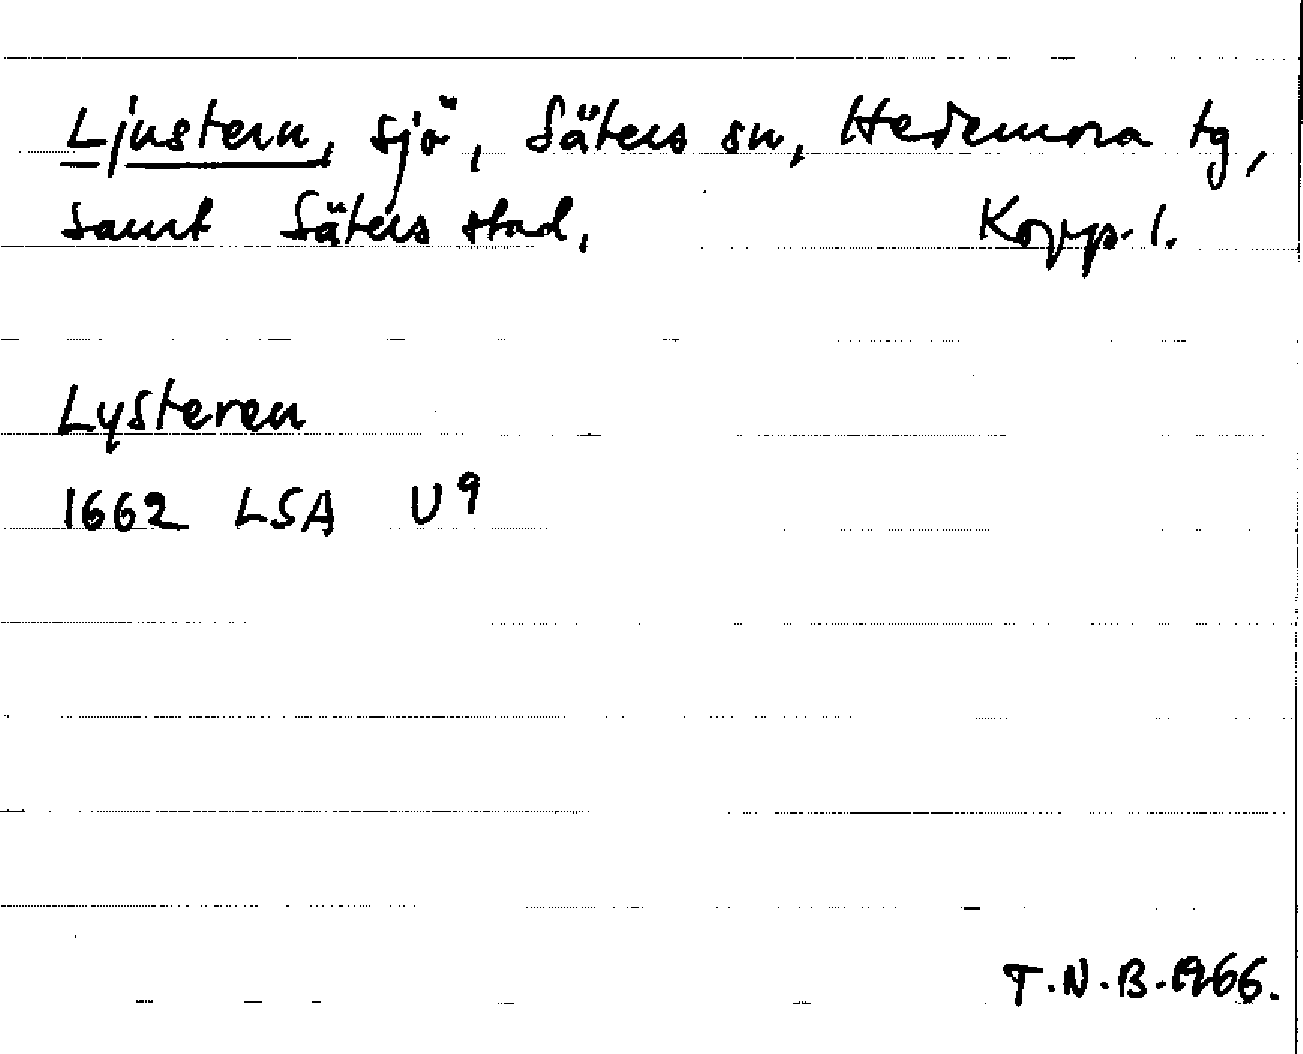 Ljustern, sjö, Säters sn, Hedemora tg,
samt Säters stad, Kopp. l.
Lysteren
1662 LSA U9
T.N.B. 1966.